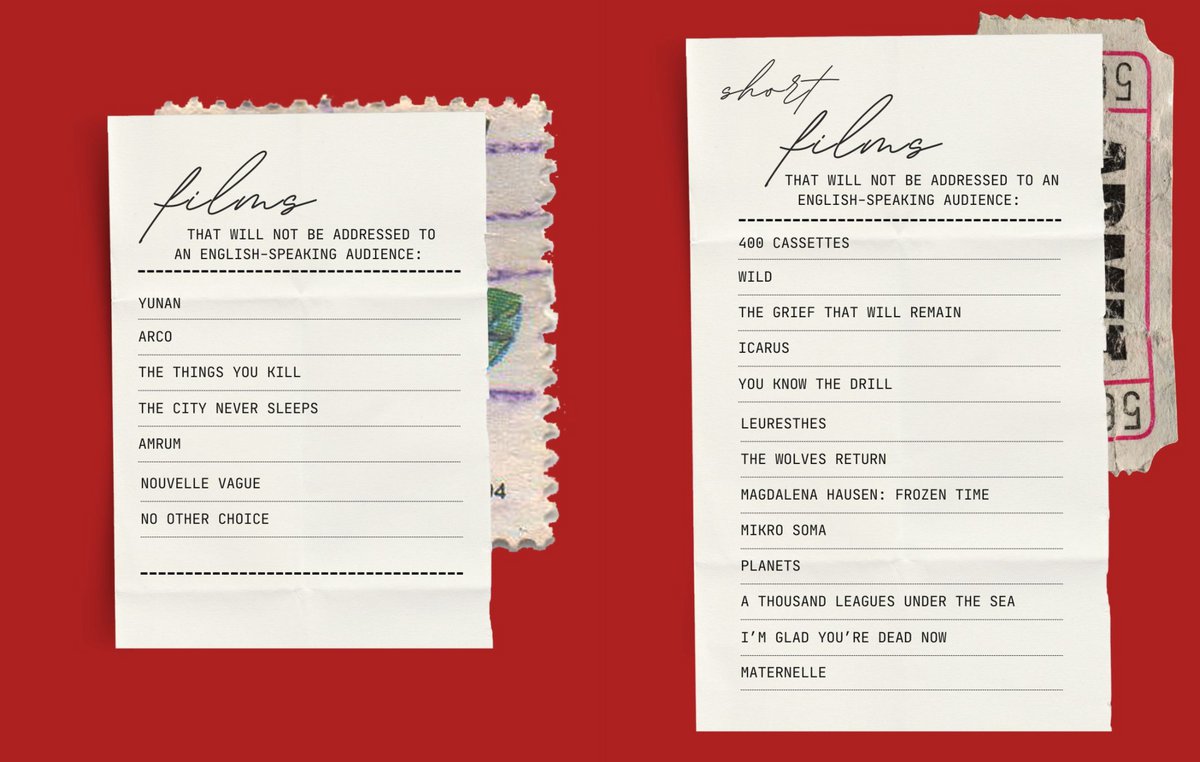 films
THAT WILL NOT BE ADDRESSED TO
AN ENGLISH-SPEAKING AUDIENCE:
YUNAN
ARCO
THE THINGS YOU KILL
THE CITY NEVER SLEEPS
AMRUM
NOUVELLE VAGUE
NO OTHER CHOICE
94
short
films
THAT WILL NOT BE ADDRESSED TO AN
ENGLISH-SPEAKING AUDIENCE:
400 CASSETTES
WILD
THE GRIEF THAT WILL REMAIN
ICARUS
YOU KNOW THE DRILL
LEURESTHES
THE WOLVES RETURN
MAGDALENA HAUSEN: FROZEN TIME
MIKRO SOMA
PLANETS
A THOUSAND LEAGUES UNDER THE SEA
I'M GLAD YOU'RE DEAD NOW
MATERNELLE